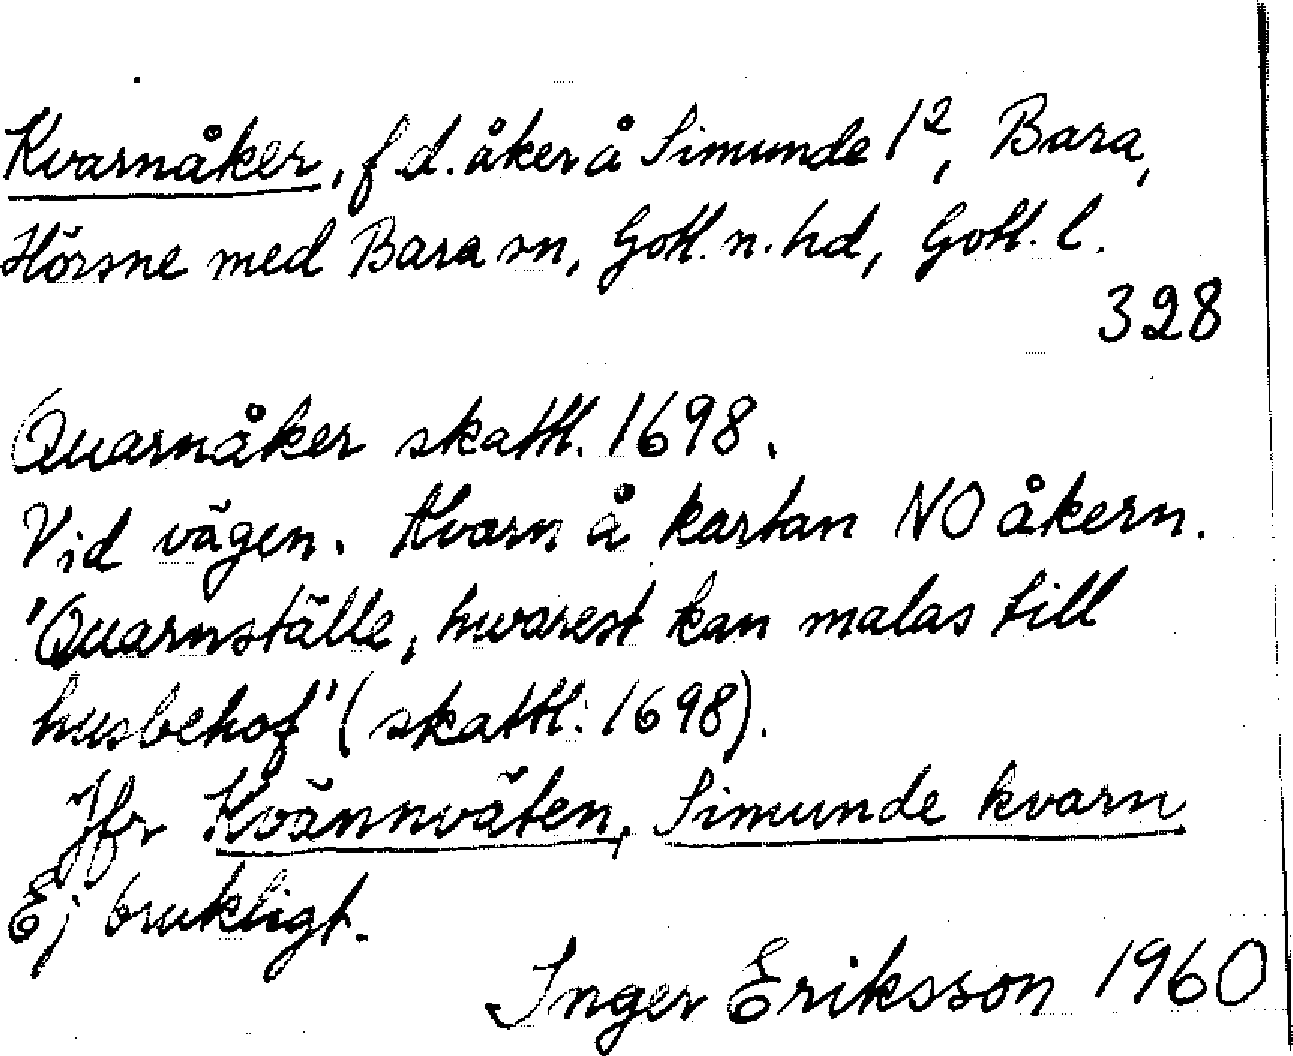 Kvarnåker, f d. åker å Simunde 1², Bara,
Hörsne med Bara sn, Gotl. n. hd, Gotl. l.
328
Quarnåker skattl. 1698.
Vid vägen. Kvarn å kartan NO åkern.
'Quarnställe, hwarest kan malas till
husbehof' (skattl. 1698).
Jfr Kvännväten, Simunde kvarn
Ej brukligt.
Inger Eriksson 1960